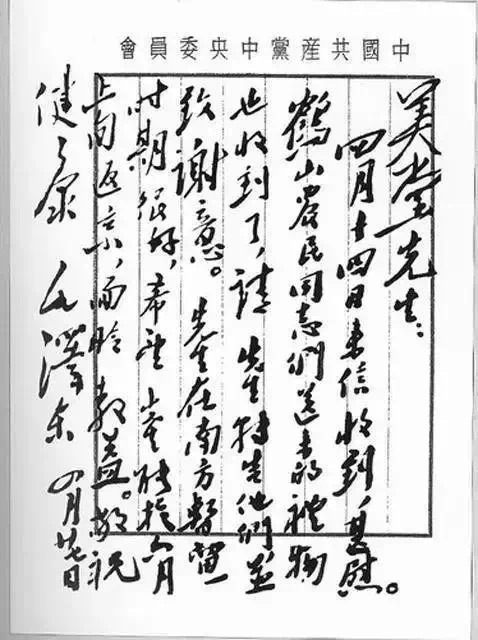 中國共產黨中央委員會
美堂先生：
四月十四日来信收到，甚慰。
鶴山農民同志们送来的禮物
也收到了，請 先生轉告他們並
致謝意。 先生在南方暫留一
时期很好，希望 先生能於六月
上旬返京，面聆教益。敬祝
健康 毛澤东 四月廿七日